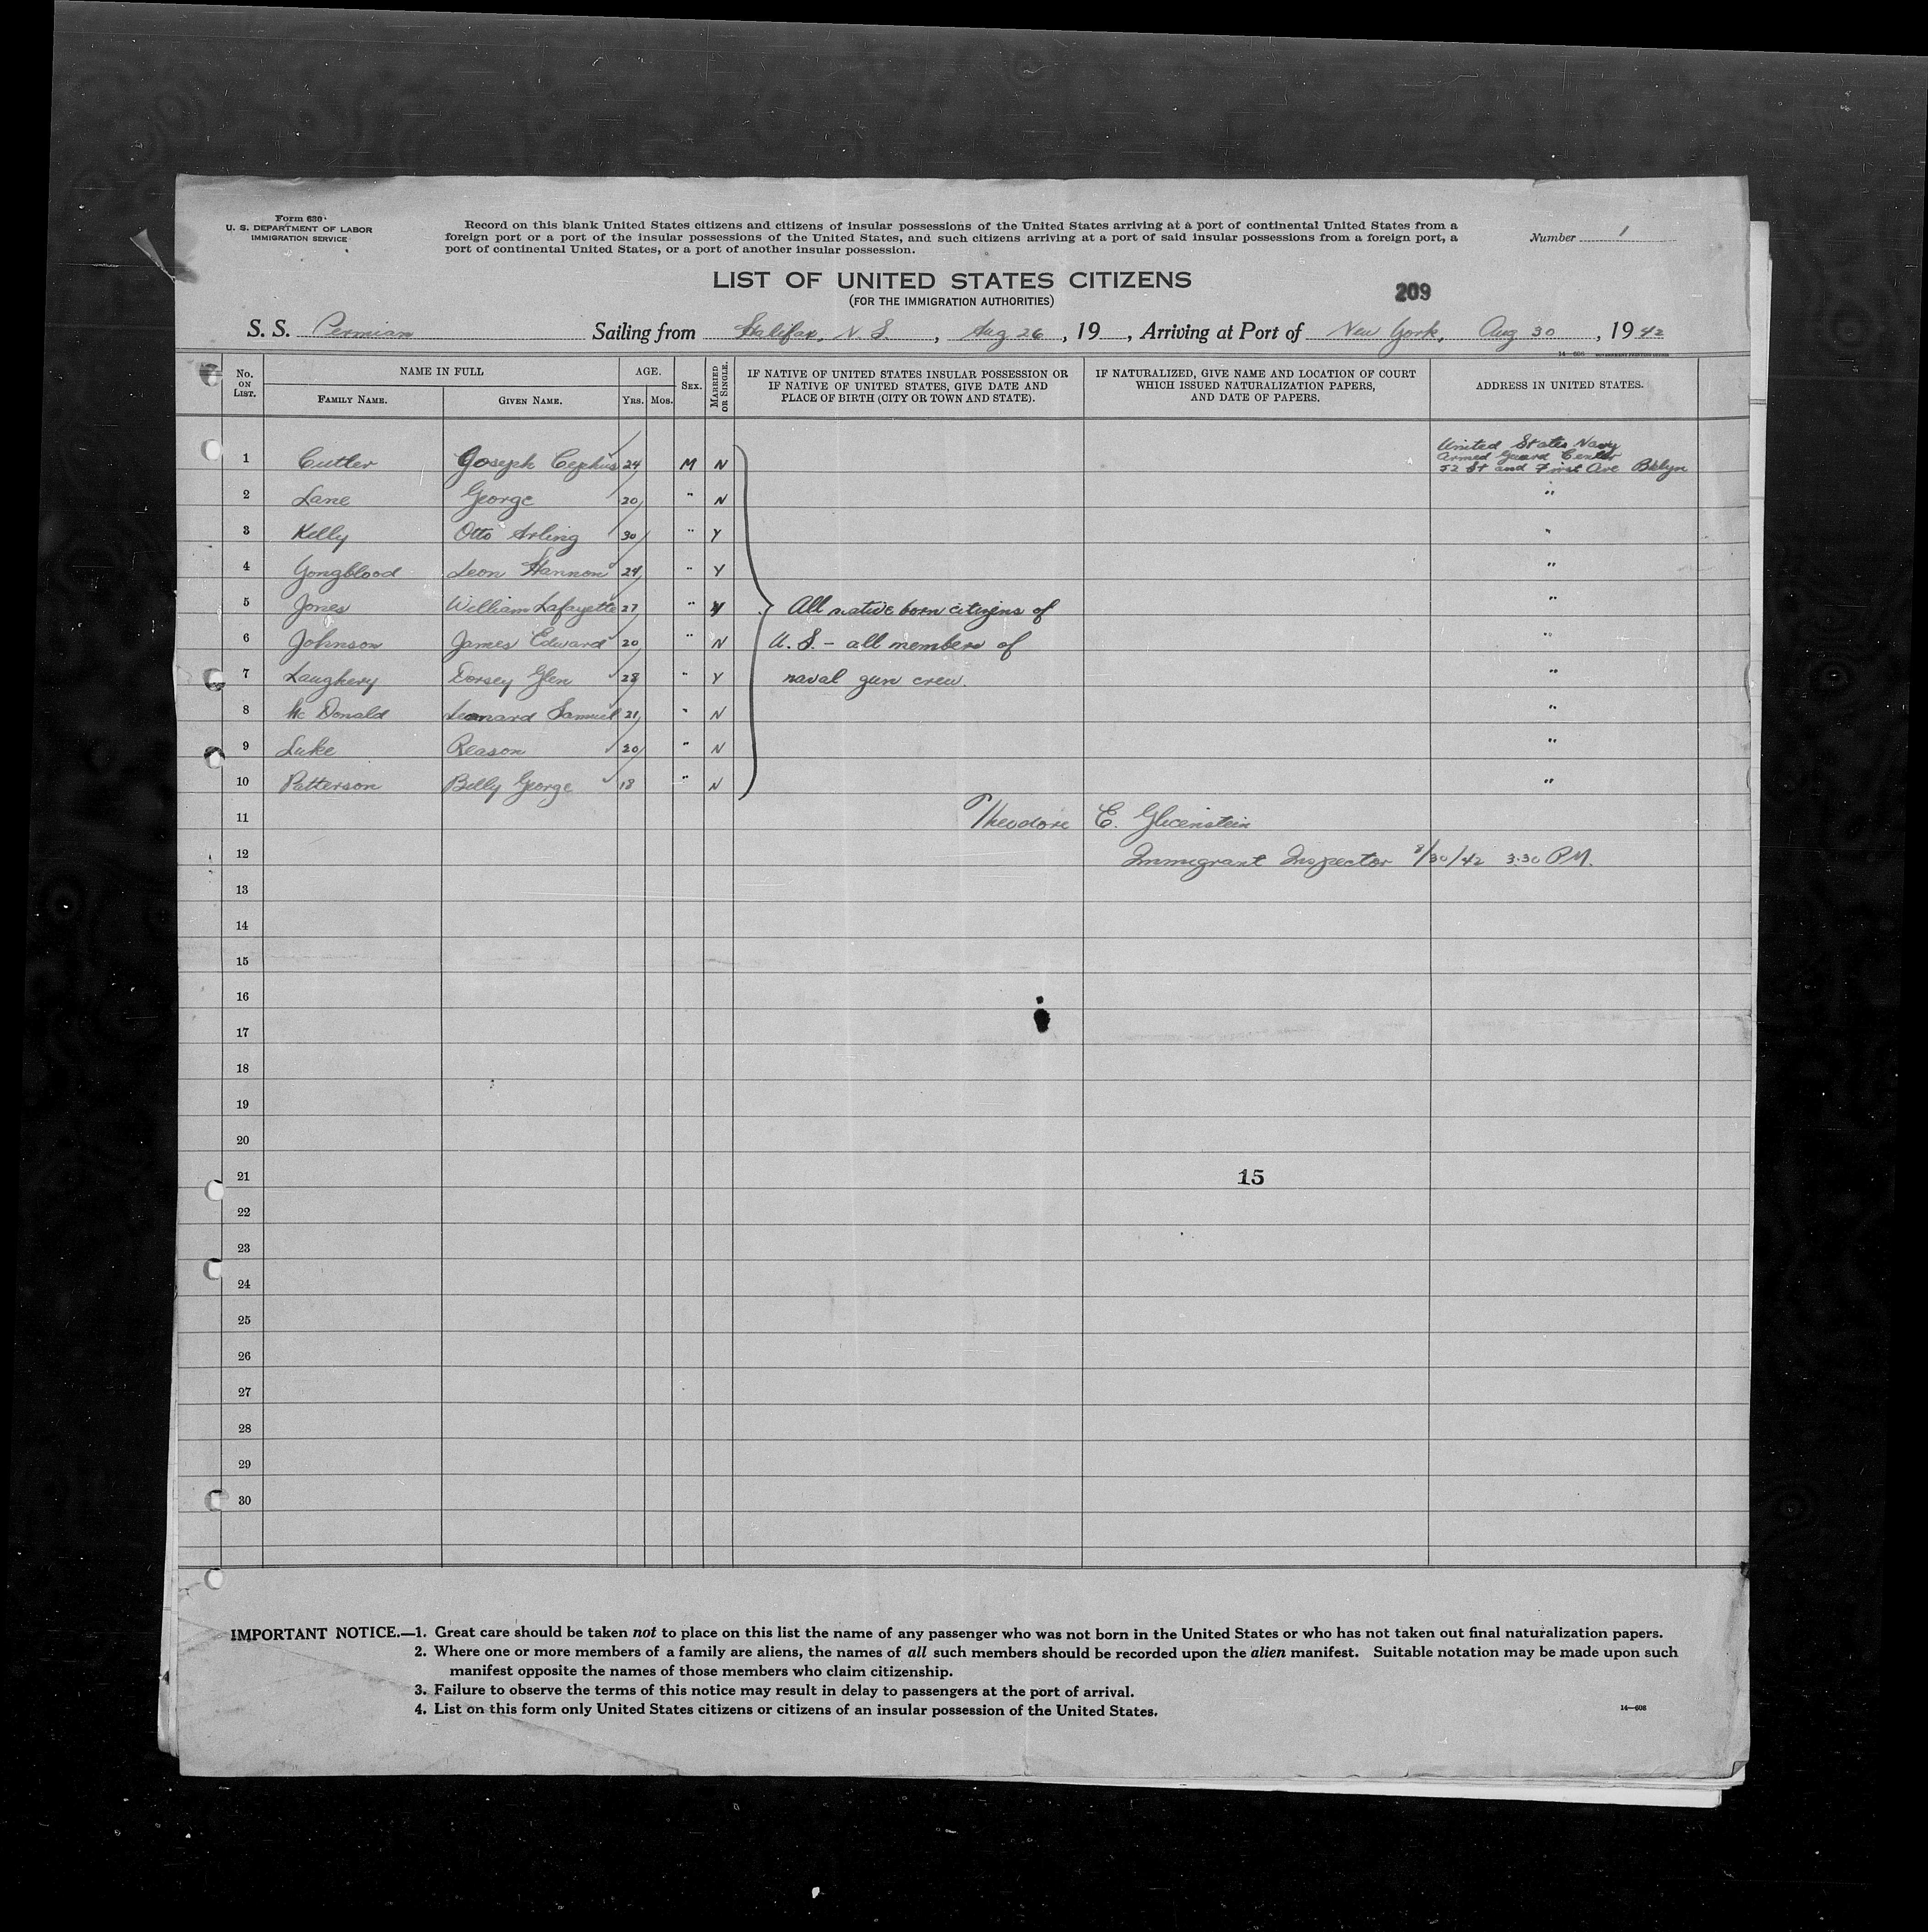 Form 630
U. S. DEPARTMENT OF LABOR
IMMIGRATION SERVICE
Record on this blank United States citizens and citizens of insular possessions of the United States arriving at a port of continental United States from a
foreign port or a port of the insular possessions of the United States, and such citizens arriving at a port of said insular possessions from a foreign port, a
port of continental United States, or a port of another insular possession.
Number 1
LIST OF UNITED STATES CITIZENS
(FOR THE IMMIGRATION AUTHORITIES)
209
S. S. Permian Sailing from Halifax, N. S. , Aug 26 , 19 , Arriving at Port of New York, Aug 30 , 19 42
14—608 GOVERNMENT PRINTING OFFICE
No. ON LIST. NAME IN FULL AGE. SEX. MARRIED OR SINGLE. IF NATIVE OF UNITED STATES INSULAR POSSESSION OR IF NATIVE OF UNITED STATES, GIVE DATE AND PLACE OF BIRTH (CITY OR TOWN AND STATE). IF NATURALIZED, GIVE NAME AND LOCATION OF COURT WHICH ISSUED NATURALIZATION PAPERS, AND DATE OF PAPERS. ADDRESS IN UNITED STATES.
FAMILY NAME. GIVEN NAME. YRS. MOS.
United States Navy
Armed Guard Center
1 Cutler Joseph Cephus 24 M N 52 St and First Ave Bklyn
2 Lane George 20 " N "
3 Kelly Otto Arling 30 " Y "
4 Yongblood Leon Hannon 24 " Y "
5 Jones William Lafayette 27 " Y All native born citizens of "
6 Johnson James Edward 20 " N U. S. - all members of "
7 Laughery Dorsey Glen 28 " Y naval gun crew. "
8 Mc Donald Leonard Samuel 21 " N "
9 Luke Reason 20 " N "
10 Patterson Billy George 18 " N "
11 Theodore E. Glicenstein
12 Immigrant Inspector 8/30/42 3:30 PM.
13
14
15
16
17
18
19
20
21 15
22
23
24
25
26
27
28
29
30
IMPORTANT NOTICE.—1. Great care should be taken not to place on this list the name of any passenger who was not born in the United States or who has not taken out final naturalization papers.
2. Where one or more members of a family are aliens, the names of all such members should be recorded upon the alien manifest. Suitable notation may be made upon such
manifest opposite the names of those members who claim citizenship.
3. Failure to observe the terms of this notice may result in delay to passengers at the port of arrival.
4. List on this form only United States citizens or citizens of an insular possession of the United States.
14—608